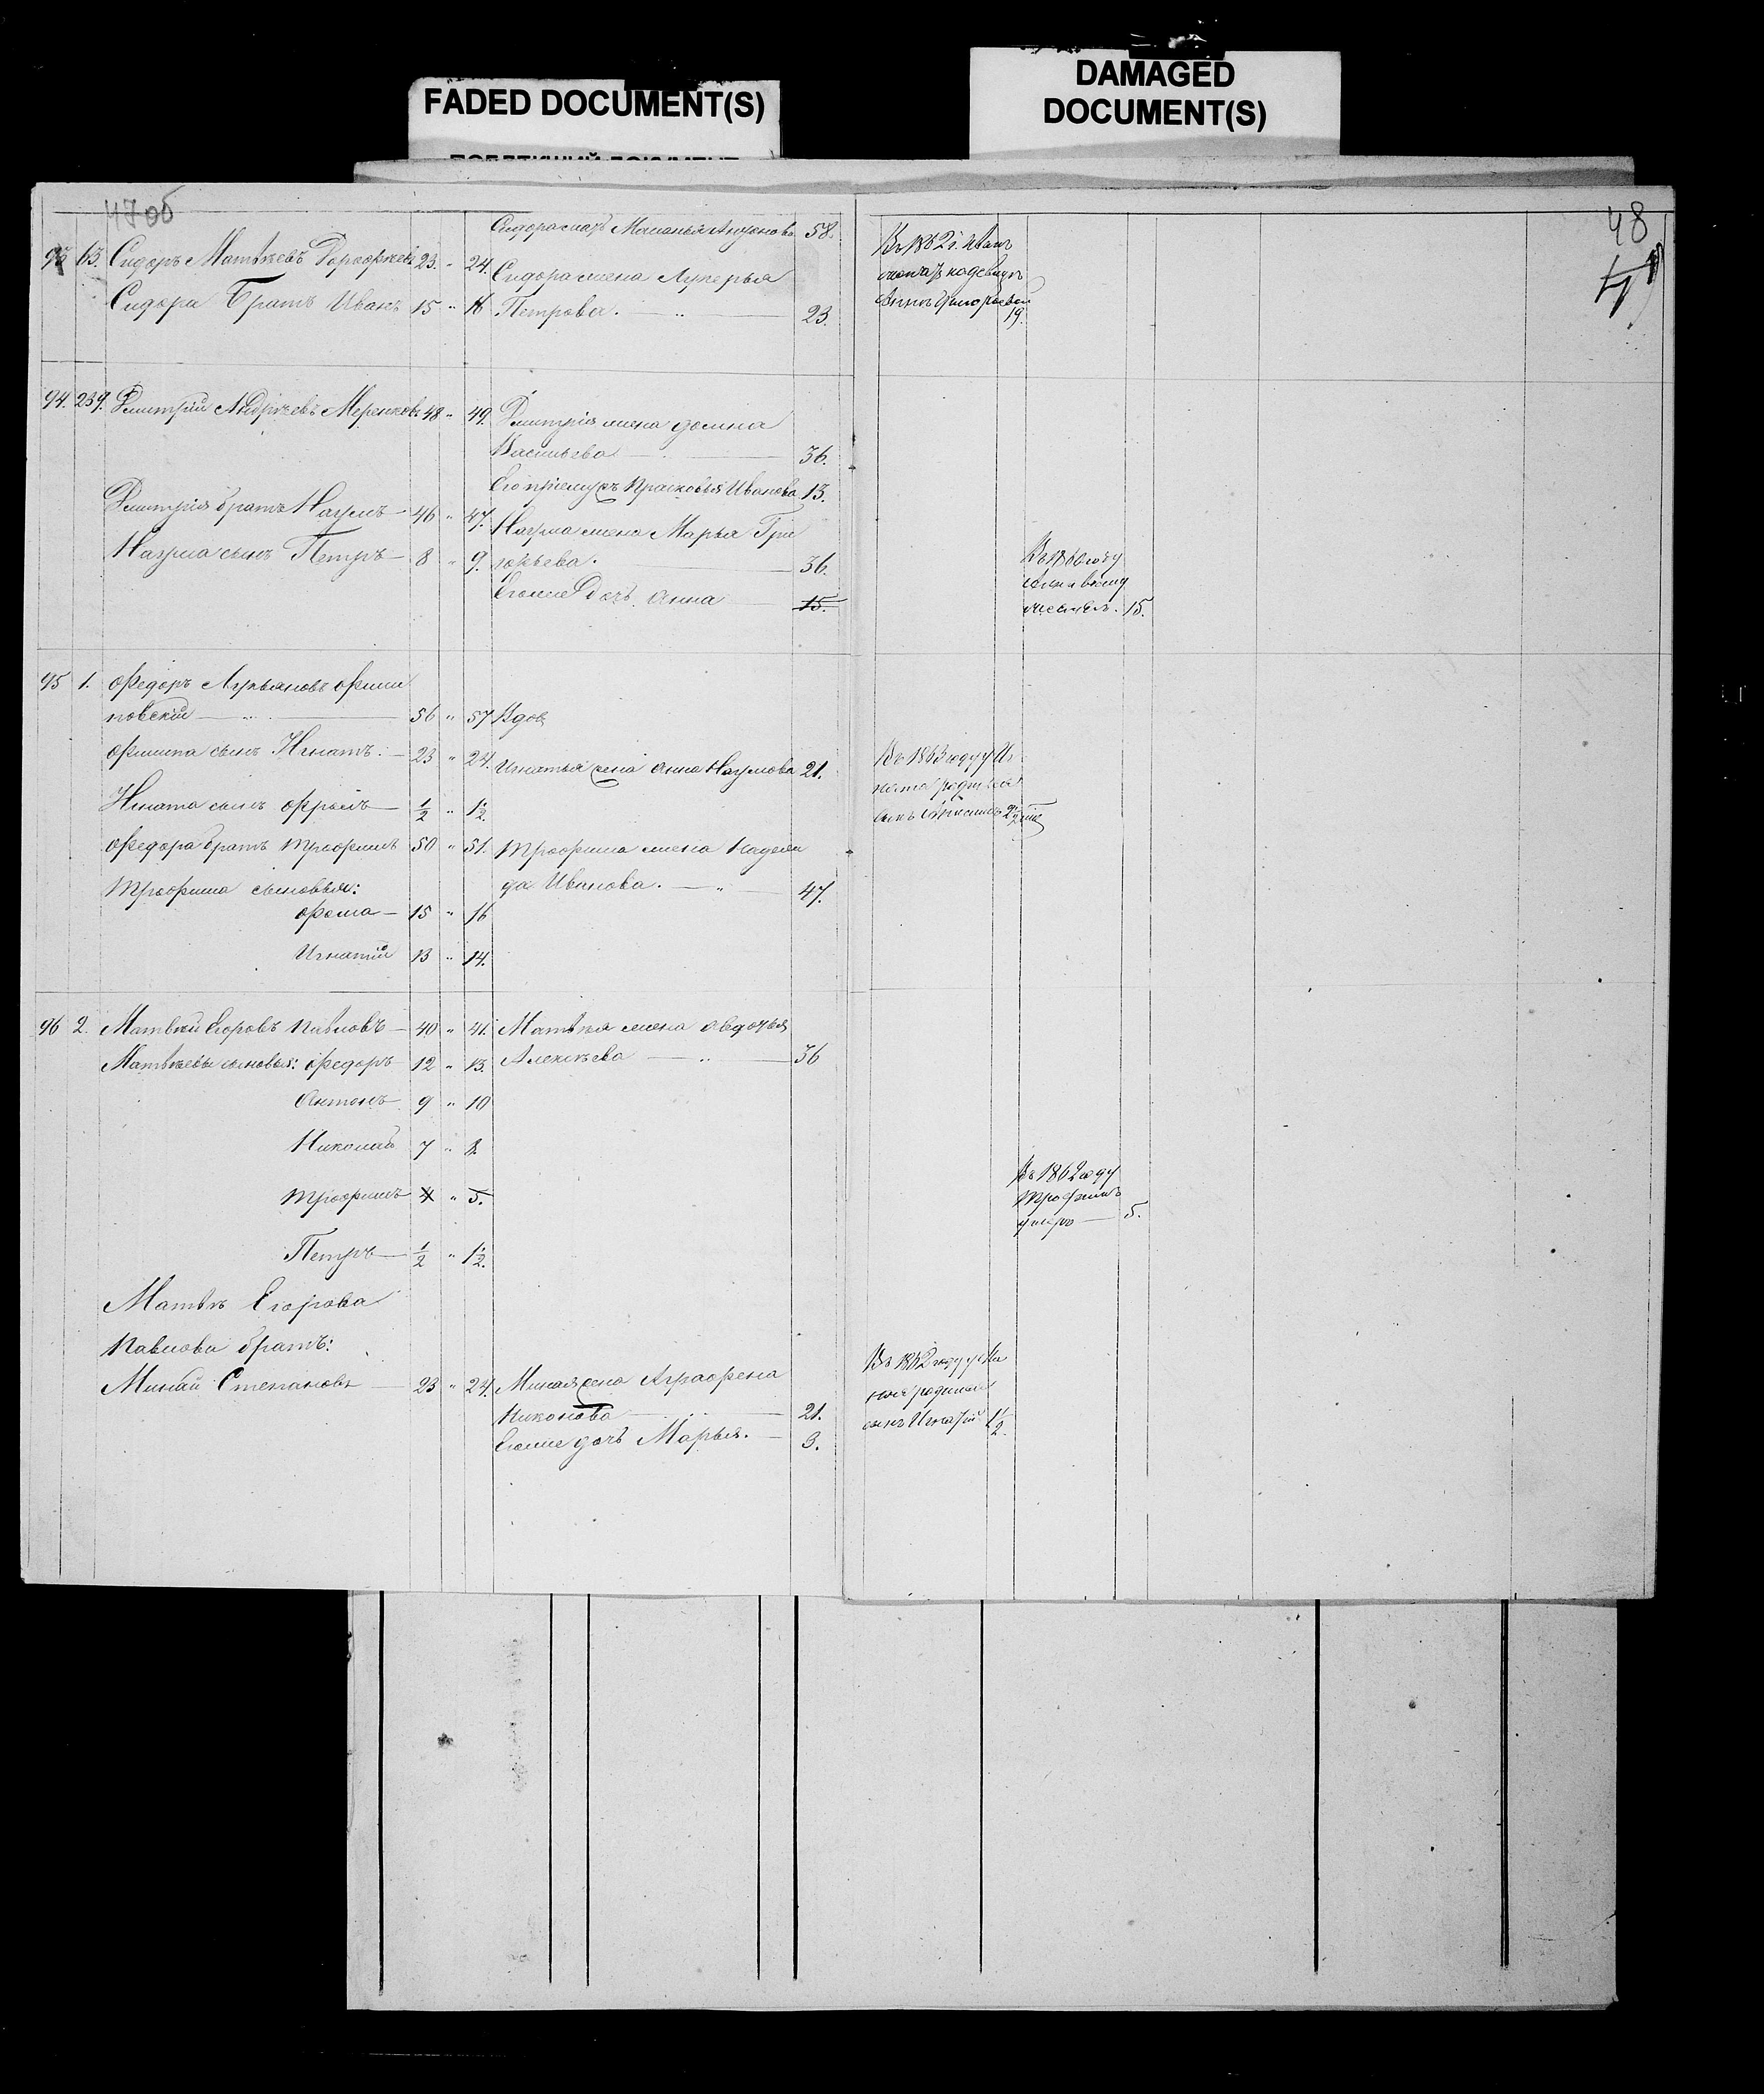 FADED DOCUMENT(S)
DAMAGED
DOCUMENT(S)
47об
48
Сидора мать Маланья 58.
93 63. Сидоръ Матвѣевъ Дорофѣевъ 23. " 24.
Сидора жена Лукерья
Сидора Братъ Иванъ 15 " 16
Петрова. — " — 23.
Въ 1862 г. Иванъ
женатъ на девицѣ
Григорьевой
19.
94. 239. Дмитрій Андрѣевъ Меренковъ 48 " 49.
Дмитрія жена Домна
Васильева — 36.
Его пріемышъ Прасковья Иванова 13.
Дмитрія братъ Наумъ — 46 " 47.
Наума жена Марья Гри
Наума сынъ Петръ — 8 " 9.
горьева. — 36.
Его же дочь Анна — 15.
Въ 1860 году
Анна вышла
15.
95 1. Федоръ Лукьяновъ Фили
повскій — " — 56 " 57 Вдов
Филипа сынъ Игнатъ. — 23 " 24.
Игнатья жена Анна Наумова 21.
Игната сынъ Фролъ — 1/2 " 1 1/2.
Въ 1863 году у Иг
ната родился
сынъ
Федора братъ Трофимъ 50 " 51.
Трофима жена Надеж
да Иванова. — " — 47.
Трофима сыновья:
Фома — 15 " 16
Игнатій 13 " 14.
96 2. Матвѣй Егоровъ Павловъ — 40 " 41.
Матвѣя жена Овдотья
Алексѣева — " — 36
Матвѣевы сыновья: Федоръ — 12 " 13.
Антонъ 9 " 10
Николай 7 " 8.
Трофимъ 4 " 5.
Въ 1862 году
Трофимъ
умеръ — 5.
Петръ — 1/2 " 1 1/2.
Матвѣ Егорова
Павлова братъ:
Минай Степановъ — 23 " 24.
Миная жена Аграфена
Никонова — " — 21.
Его же дочь Марья. — 3.
Въ 1862 году у Ми
ная родился
сынъ Игнатій 1 1/2.